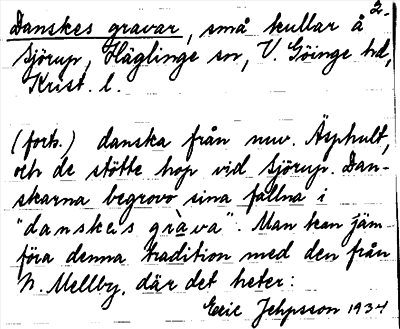 2.
Danskes gravar, små kullar å
Sjörup, Häglinge sn, V. Göinge hd,
Krist. l.
(forts.) danska från nuv. Äsphult,
och de stötte hop vid Sjörup. Dan-
skarna begrovo sina fallna i
"danskes gràva". Man kan jäm-
föra denna tradition med den från
N. Mellby, där det heter:
Eric Jehpsson 1934